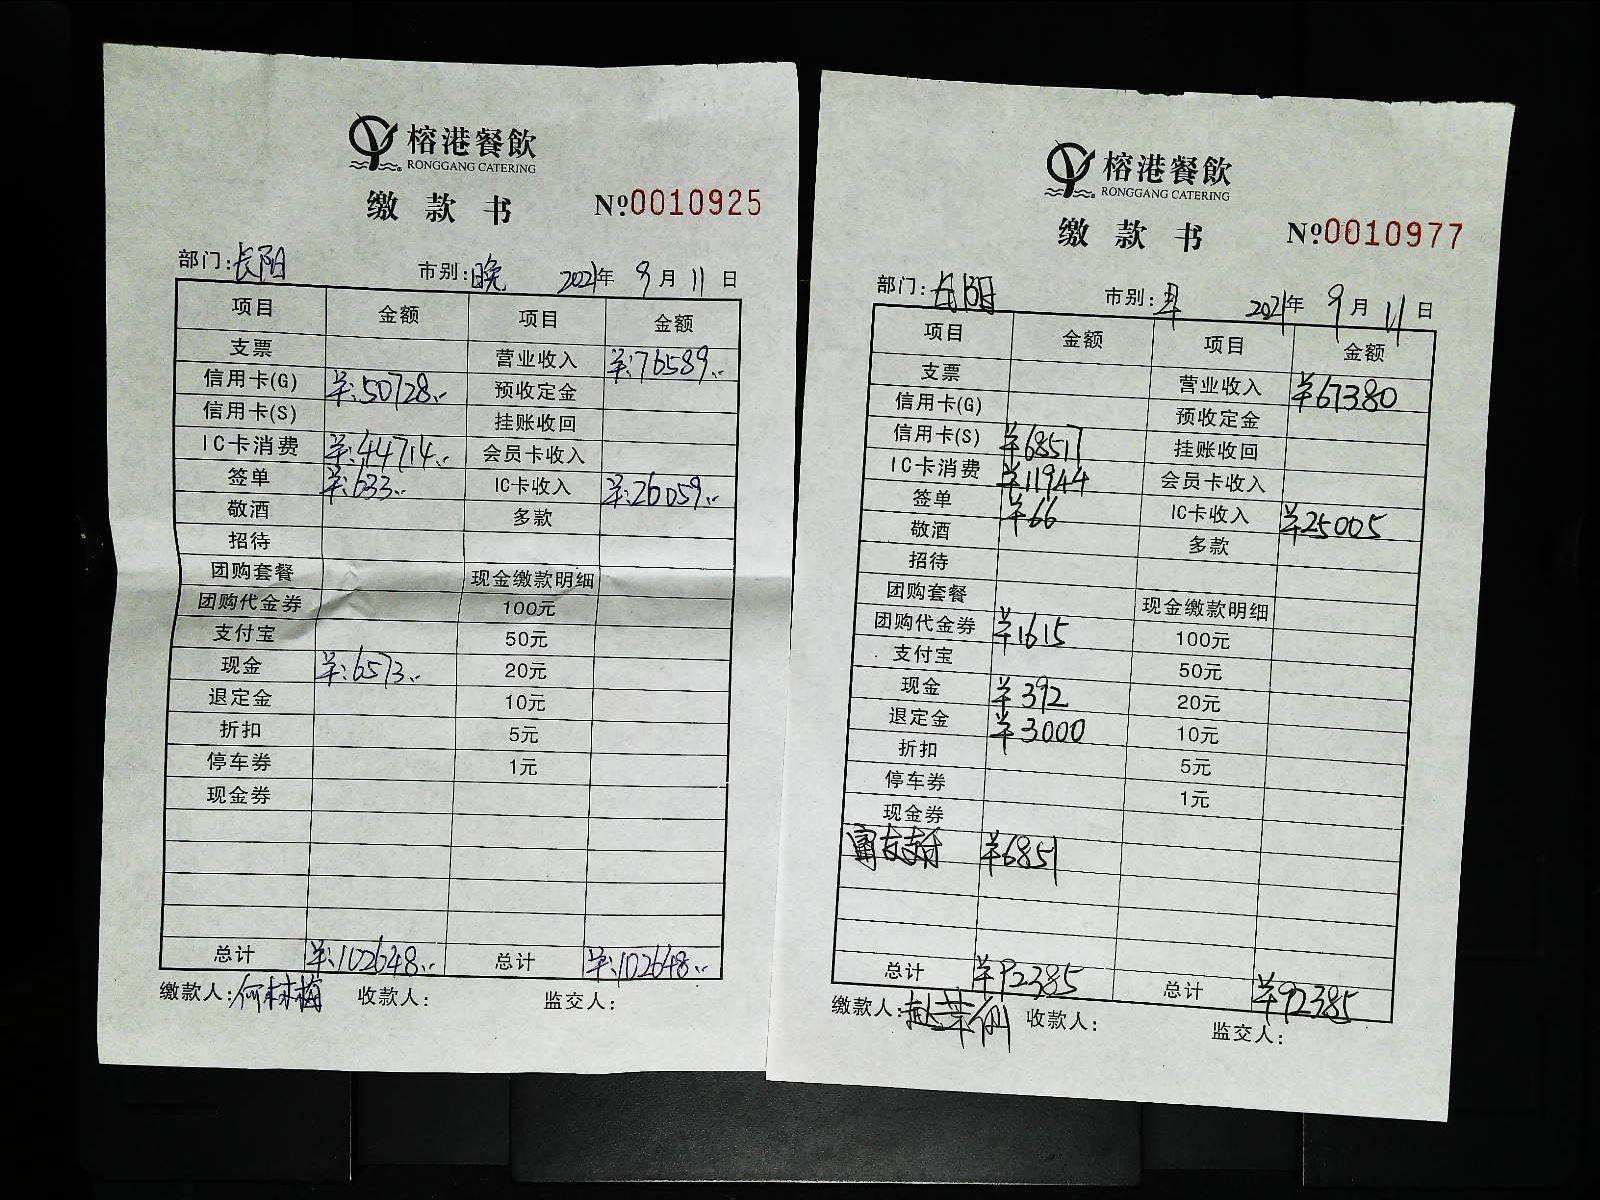 榕港餐飲
RONGGANG CATERING
缴款书 №0010925
部门:长阳 市别:晚 2021年 9月 11日
项目 金额 项目 金额
支票 营业收入 ¥:76589..
信用卡(G) ¥:50728.. 预收定金
信用卡(S) 挂账收回
IC卡消费 ¥:44714.. 会员卡收入
签单 ¥:633.. IC卡收入 ¥:26059..
敬酒 多款
招待
团购套餐 现金缴款明细
团购代金券 100元
支付宝 50元
现金 ¥:6573.. 20元
退定金 10元
折扣 5元
停车券 1元
现金券
总计 ¥:102648.. 总计 ¥:102648..
缴款人:何林梅 收款人: 监交人:
榕港餐飲
RONGGANG CATERING
缴款书 №0010977
部门:长阳 市别:早 2021年 9月 11日
项目 金额 项目 金额
支票 营业收入 ¥67380
信用卡(G) 预收定金
信用卡(S) ¥68517 挂账收回
IC卡消费 ¥11944 会员卡收入
签单 ¥66 IC卡收入 ¥25005
敬酒 多款
招待
团购套餐 现金缴款明细
团购代金券 ¥1615 100元
支付宝 50元
现金 ¥392 20元
退定金 ¥3000 10元
折扣 5元
停车券 1元
现金券
富友支付 ¥6851
总计 ¥92385 总计 ¥92385
缴款人: 收款人: 监交人: